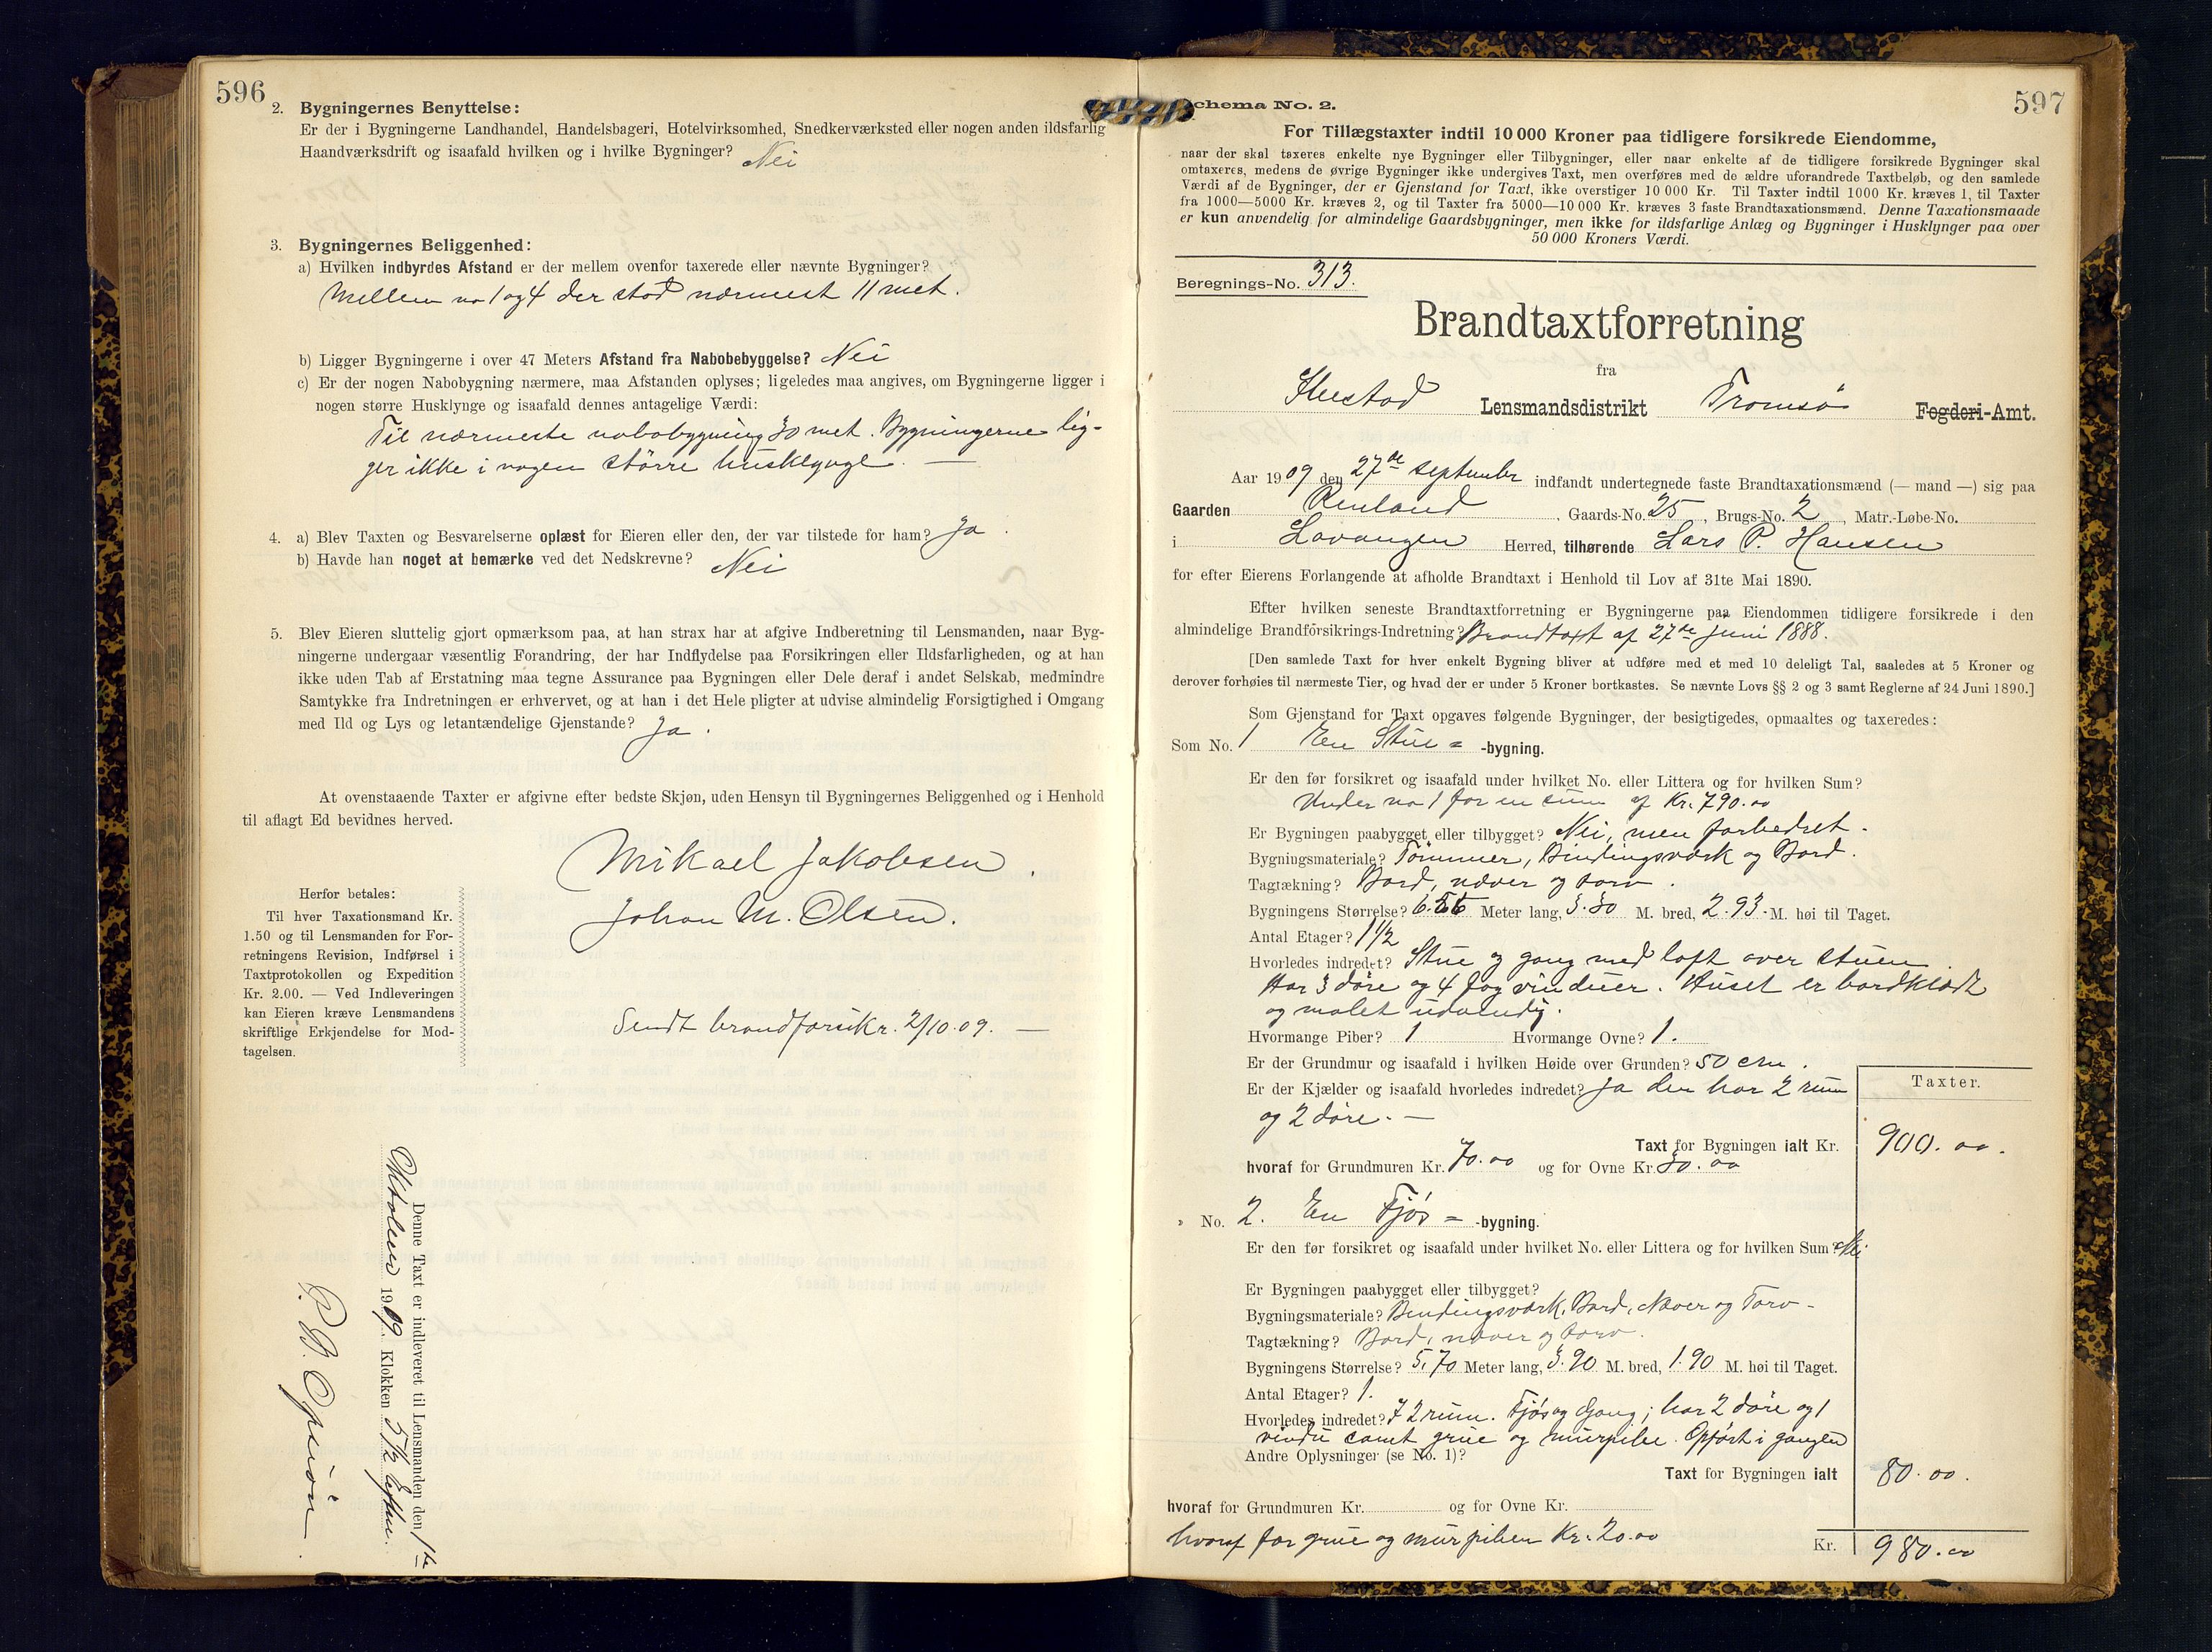 596
2. Bygningernes Benyttelse:
Er der i Bygningerne Landhandel, Handelsbageri, Hotelvirksomhed, Snedkerværksted eller nogen anden ildsfarlig
Haandværksdrift og isaafald hvilken og i hvilke Bygninger? Nei
3. Bygningernes Beliggenhed:
a) Hvilken indbyrdes Afstand er der mellem ovenfor taxerede eller nævnte Bygninger?
Mellem no 1 og 4 der stod nærmest 11 met.
b) Ligger Bygningerne i over 47 Meters Afstand fra Nabobebyggelse? Nei
c) Er der nogen Nabobygning nærmere, maa Afstanden oplyses; ligeledes maa angives, om Bygningerne ligger i
nogen større Husklynge og isaafald dennes antagelige Værdi:
Til nærmeste nabobygning 30 met. Bygningerne lig-
ger ikke i nogen större husklynge. —
4. a) Blev Taxten og Besvarelserne oplæst for Eieren eller den, der var tilstede for ham? Ja.
b) Havde han noget at bemærke ved det Nedskrevne? Nei
5. Blev Eieren sluttelig gjort opmærksom paa, at han strax har at afgive Indberetning til Lensmanden, naar Byg-
ningerne undergaar væsentlig Forandring, der har Indflydelse paa Forsikringen eller Ildsfarligheden, og at han
ikke uden Tab af Erstatning maa tegne Assurance paa Bygningen eller Dele deraf i andet Selskab, medmindre
Samtykke fra Indretningen er erhvervet, og at han i det Hele pligter at udvise almindelig Forsigtighed i Omgang
med Ild og Lys og letantændelige Gjenstande? Ja.
At ovenstaaende Taxter er afgivne efter bedste Skjøn, uden Hensyn til Bygningernes Beliggenhed og i Henhold
til aflagt Ed bevidnes herved.
Mikael Jakobsen.
Johan M. Olsen.
Herfor betales:
Til hver Taxationsmand Kr.
1.50 og til Lensmanden for For-
retningens Revision, Indførsel i
Taxtprotokollen og Expedition
Kr. 2.00. — Ved Indleveringen
kan Eieren kræve Lensmandens
skriftlige Erkjendelse for Mod-
tagelsen.
Sendt brandforsikr. 2/10.09. —
Denne Taxt er indleveret til Lensmanden den 1ste
Oktober 1909. Klokken 5 1/2 Efterm.
597
Schema No. 2.
For Tillægstaxter indtil 10 000 Kroner paa tidligere forsikrede Eiendomme,
naar der skal taxeres enkelte nye Bygninger eller Tilbygninger, eller naar enkelte af de tidligere forsikrede Bygninger skal
omtaxeres, medens de øvrige Bygninger ikke undergives Taxt, men overføres med de ældre uforandrede Taxtbeløb, og den samlede
Værdi af de Bygninger, der er Gjenstand for Taxt, ikke overstiger 10 000 Kr. Til Taxter indtil 1000 Kr. kræves 1, til Taxter
fra 1000—5000 Kr. kræves 2, og til Taxter fra 5000—10 000 Kr. kræves 3 faste Brandtaxationsmænd. Denne Taxationsmaade
er kun anvendelig for almindelige Gaardsbygninger, men ikke for ildsfarlige Anlæg og Bygninger i Husklynger paa over
50 000 Kroners Værdi.
Beregnings-No. 313.
Brandtaxtforretning
fra
Ibestad Lensmandsdistrikt Tromsö Fogderi-Amt.
Aar 1909 den 27de september indfandt undertegnede faste Brandtaxationsmænd (— mand —) sig paa
Gaarden Renland, Gaards-No. 25, Brugs-No. 2, Matr.-Løbe-No.
i Lavangen Herred, tilhørende Lars P. Hansen
for efter Eierens Forlangende at afholde Brandtaxt i Henhold til Lov af 31te Mai 1890.
Efter hvilken seneste Brandtaxtforretning er Bygningerne paa Eiendommen tidligere forsikrede i den
almindelige Brandforsikrings-Indretning? Brandtaxt af 27de Juni 1888.
[Den samlede Taxt for hver enkelt Bygning bliver at udføre med et med 10 deleligt Tal, saaledes at 5 Kroner og
derover forhøies til nærmeste Tier, og hvad der er under 5 Kroner bortkastes. Se nævnte Lovs §§ 2 og 3 samt Reglerne af 24 Juni 1890.]
Som Gjenstand for Taxt opgaves følgende Bygninger, der besigtigedes, opmaaltes og taxeredes:
Som No. 1 En Stue = -bygning.
Er den før forsikret og isaafald under hvilket No. eller Littera og for hvilken Sum?
Under no 1 for en sum af Kr. 790.00
Er Bygningen paabygget eller tilbygget? Nei, men forbedret.
Bygningsmateriale? Tömmer, Bindingsværk og Bord.
Tagtækning? Bord, næver og torv.
Bygningens Størrelse? Meter lang, 3.30 M. bred, 2.93 M. høi til Taget.
Antal Etager? 1 1/2
Hvorledes indredet? Stue og gang med loft over stuen.
Har 3 döre og 4 fag vinduer. Huset er bordklædt
og malet udvendig.
Hvormange Piber? 1 Hvormange Ovne? 1.
Er der Grundmur og isaafald i hvilken Høide over Grunden? 50 cm.
Er der Kjælder og isaafald hvorledes indredet? Ja den har 2 rum
og 2 döre. —
Taxter.
Taxt for Bygningen ialt Kr. 900.00.
hvoraf for Grundmuren Kr. 70.00 og for Ovne Kr. 30.00
" No. 2. En Fjös = -bygning.
Er den før forsikret og isaafald under hvilket No. eller Littera og for hvilken Sum? Nei
Er Bygningen paabygget eller tilbygget?
Bygningsmateriale? Bindingsværk, Bord, Næver og Torv.
Tagtækning? Bord, næver og torv.
Bygningens Størrelse? 5.70 Meter lang, 3.90 M. bred, 1.90 M. høi til Taget.
Antal Etager? 1.
Hvorledes indredet? I 2 rum. Fjös og Gang; har 2 döre og 1
vindu samt grue og murpibe. Opfört i gangen
Andre Oplysninger (se No. 1)?
Taxt for Bygningen ialt 80.00.
hvoraf for Grundmuren Kr. og for Ovne Kr.
hvoraf for grue og murpiben Kr. 20.00
Kr. 980.00